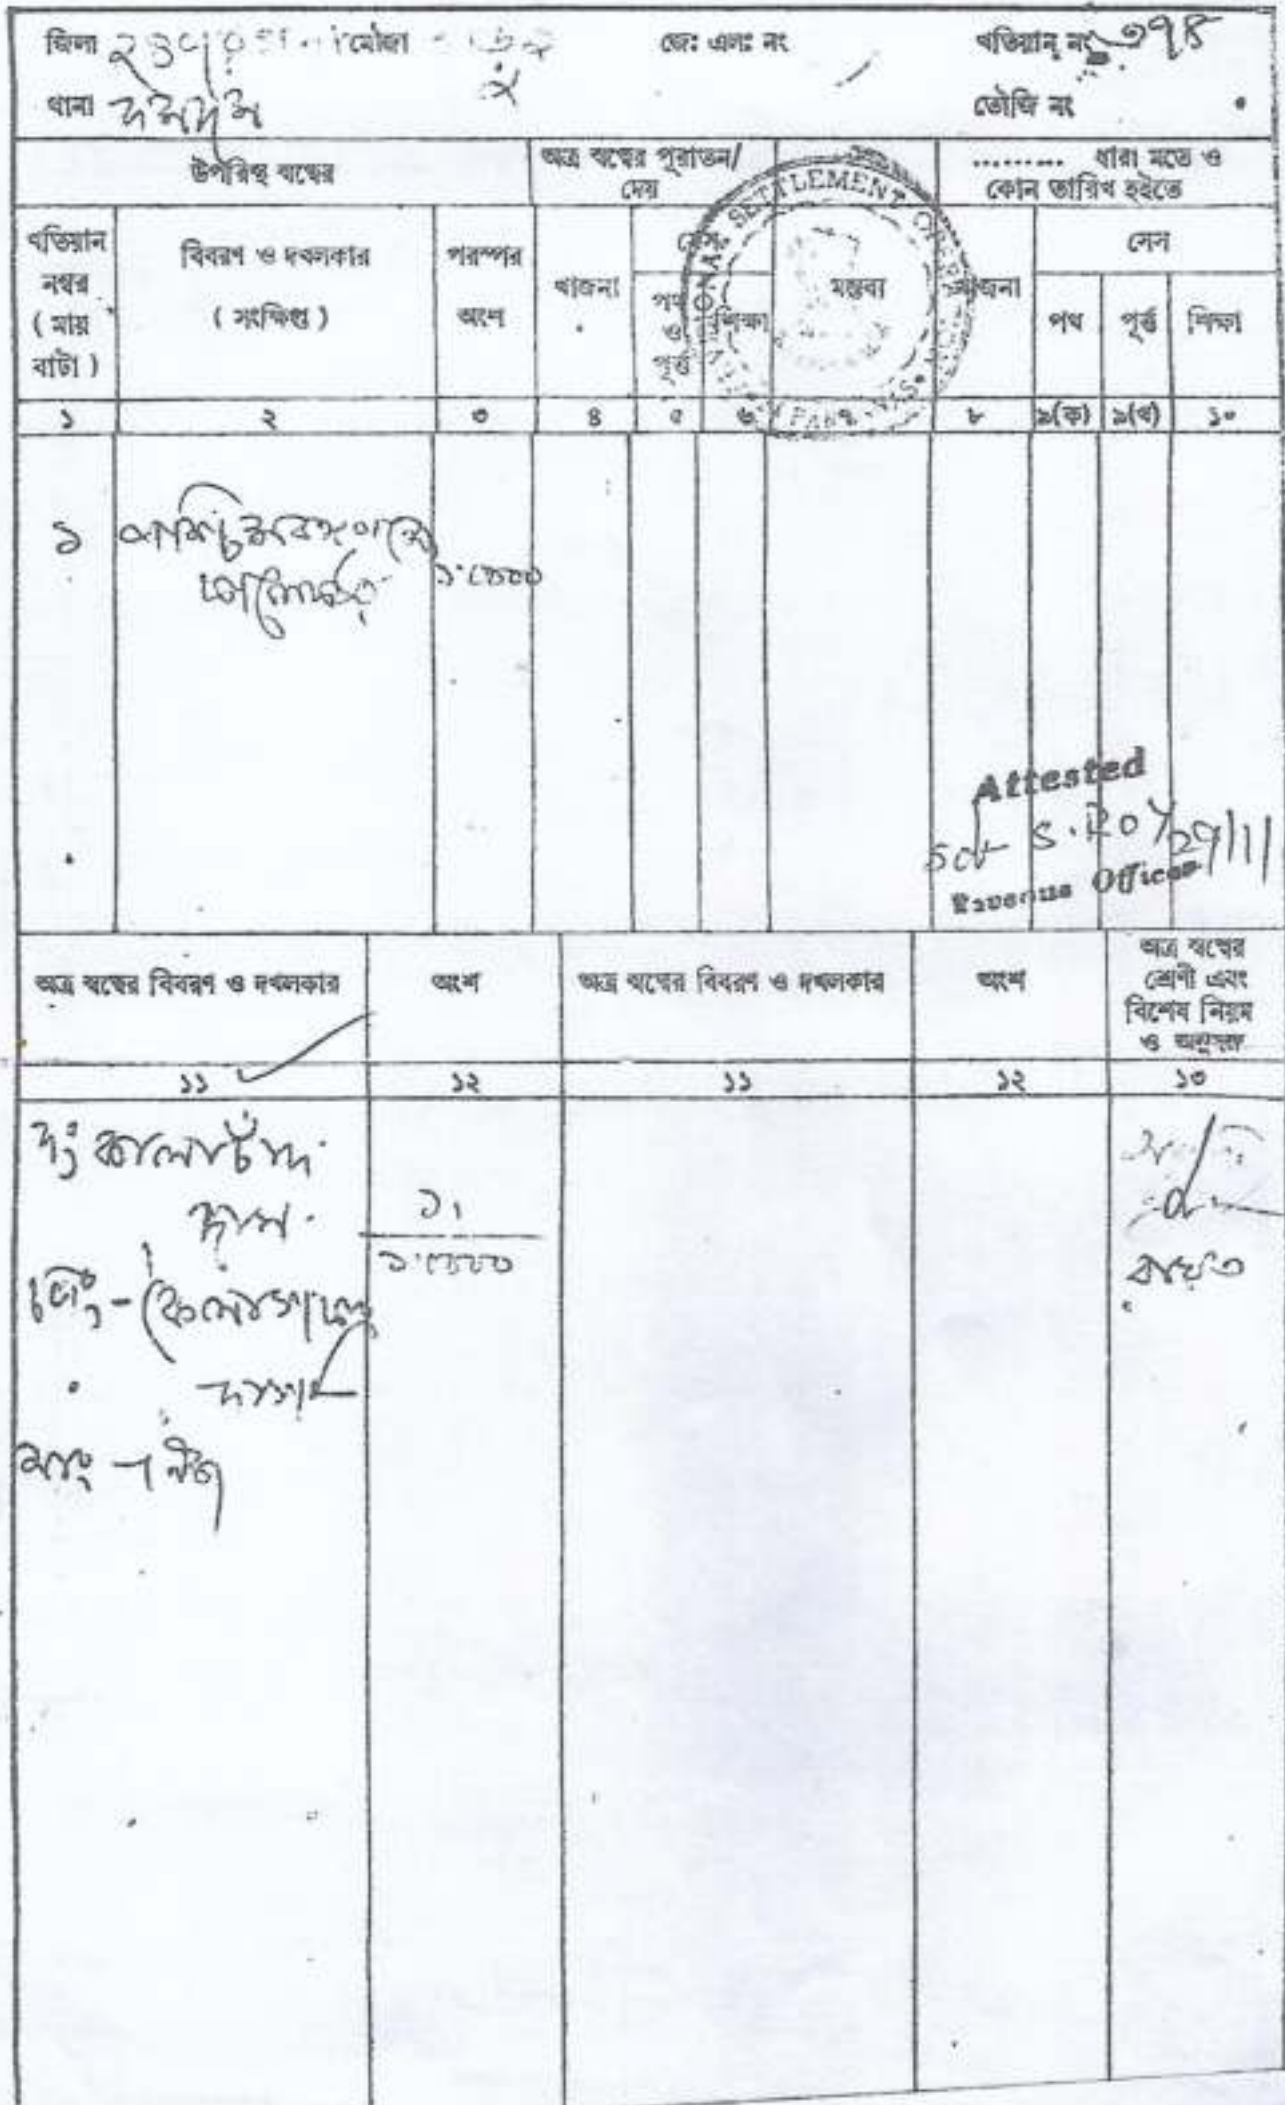 জিলা ২৪ পরগনা মৌজা জেঃ এলঃ নং খতিয়ান নং ৩৭৪
থানা দমদম তৌজি নং
উপরিস্থ স্বত্বের
অত্র স্বত্বের পুরাতন/
দেয়
.......... ধারা মতে ও
কোন তারিখ হইতে
খতিয়ান
নম্বর
( মায়
বাটা )
বিবরণ ও দখলকার
( সংক্ষিপ্ত )
পরস্পর
অংশ
খাজনা
সেস
পথ
ও
পূর্ত্ত
শিক্ষা
মন্তব্য
খাজনা
সেস
পথ
পূর্ত্ত
শিক্ষা
SETTLEMENT
১ ২ ৩ ৪ ৫ ৬ ৭ ৮ ৯(ক) ৯(খ) ১০
১ পশ্চিমবঙ্গ
Attested
Sd/- S. ROY 29/11
Revenue Officer
অত্র স্বত্বের বিবরণ ও দখলকার
অংশ
অত্র স্বত্বের বিবরণ ও দখলকার
অংশ
অত্র স্বত্বের
শ্রেণী এবং
বিশেষ নিয়ম
ও অনুসঙ্গ
১১ ১২ ১১ ১২ ১৩
দঃ কালাচাঁদ
দাস
১৲
পিং - কৈলাসচন্দ্র
দাস
সাং - নিজ
রায়ত